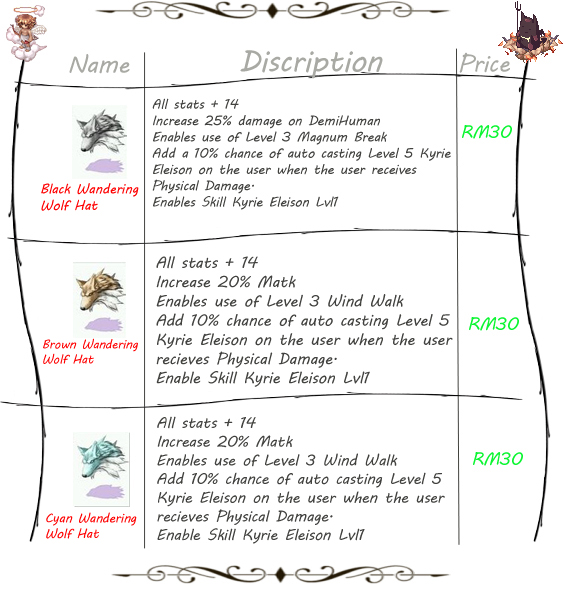 Name Discription Price
All stats + 14
Increase 25% damage on DemiHuman
Enables use of Level 3 Magnum Break
Add a 10% chance of auto casting Level 5 Kyrie
Eleison on the user when the user receives
Physical Damage.
Enables Skill Kyrie Eleison Lvl1
RM30
Black Wandering
Wolf Hat
All stats + 14
Increase 20% Matk
Enables use of Level 3 Wind Walk
Add 10% chance of auto casting Level 5
Kyrie Eleison on the user when the user
recieves Physical Damage.
Enable Skill Kyrie Eleison Lvl1
RM30
Brown Wandering
Wolf Hat
All stats + 14
Increase 20% Matk
Enables use of Level 3 Wind Walk
Add 10% chance of auto casting Level 5
Kyrie Eleison on the user when the user
recieves Physical Damage.
Enable Skill Kyrie Eleison Lvl1
RM30
Cyan Wandering
Wolf Hat